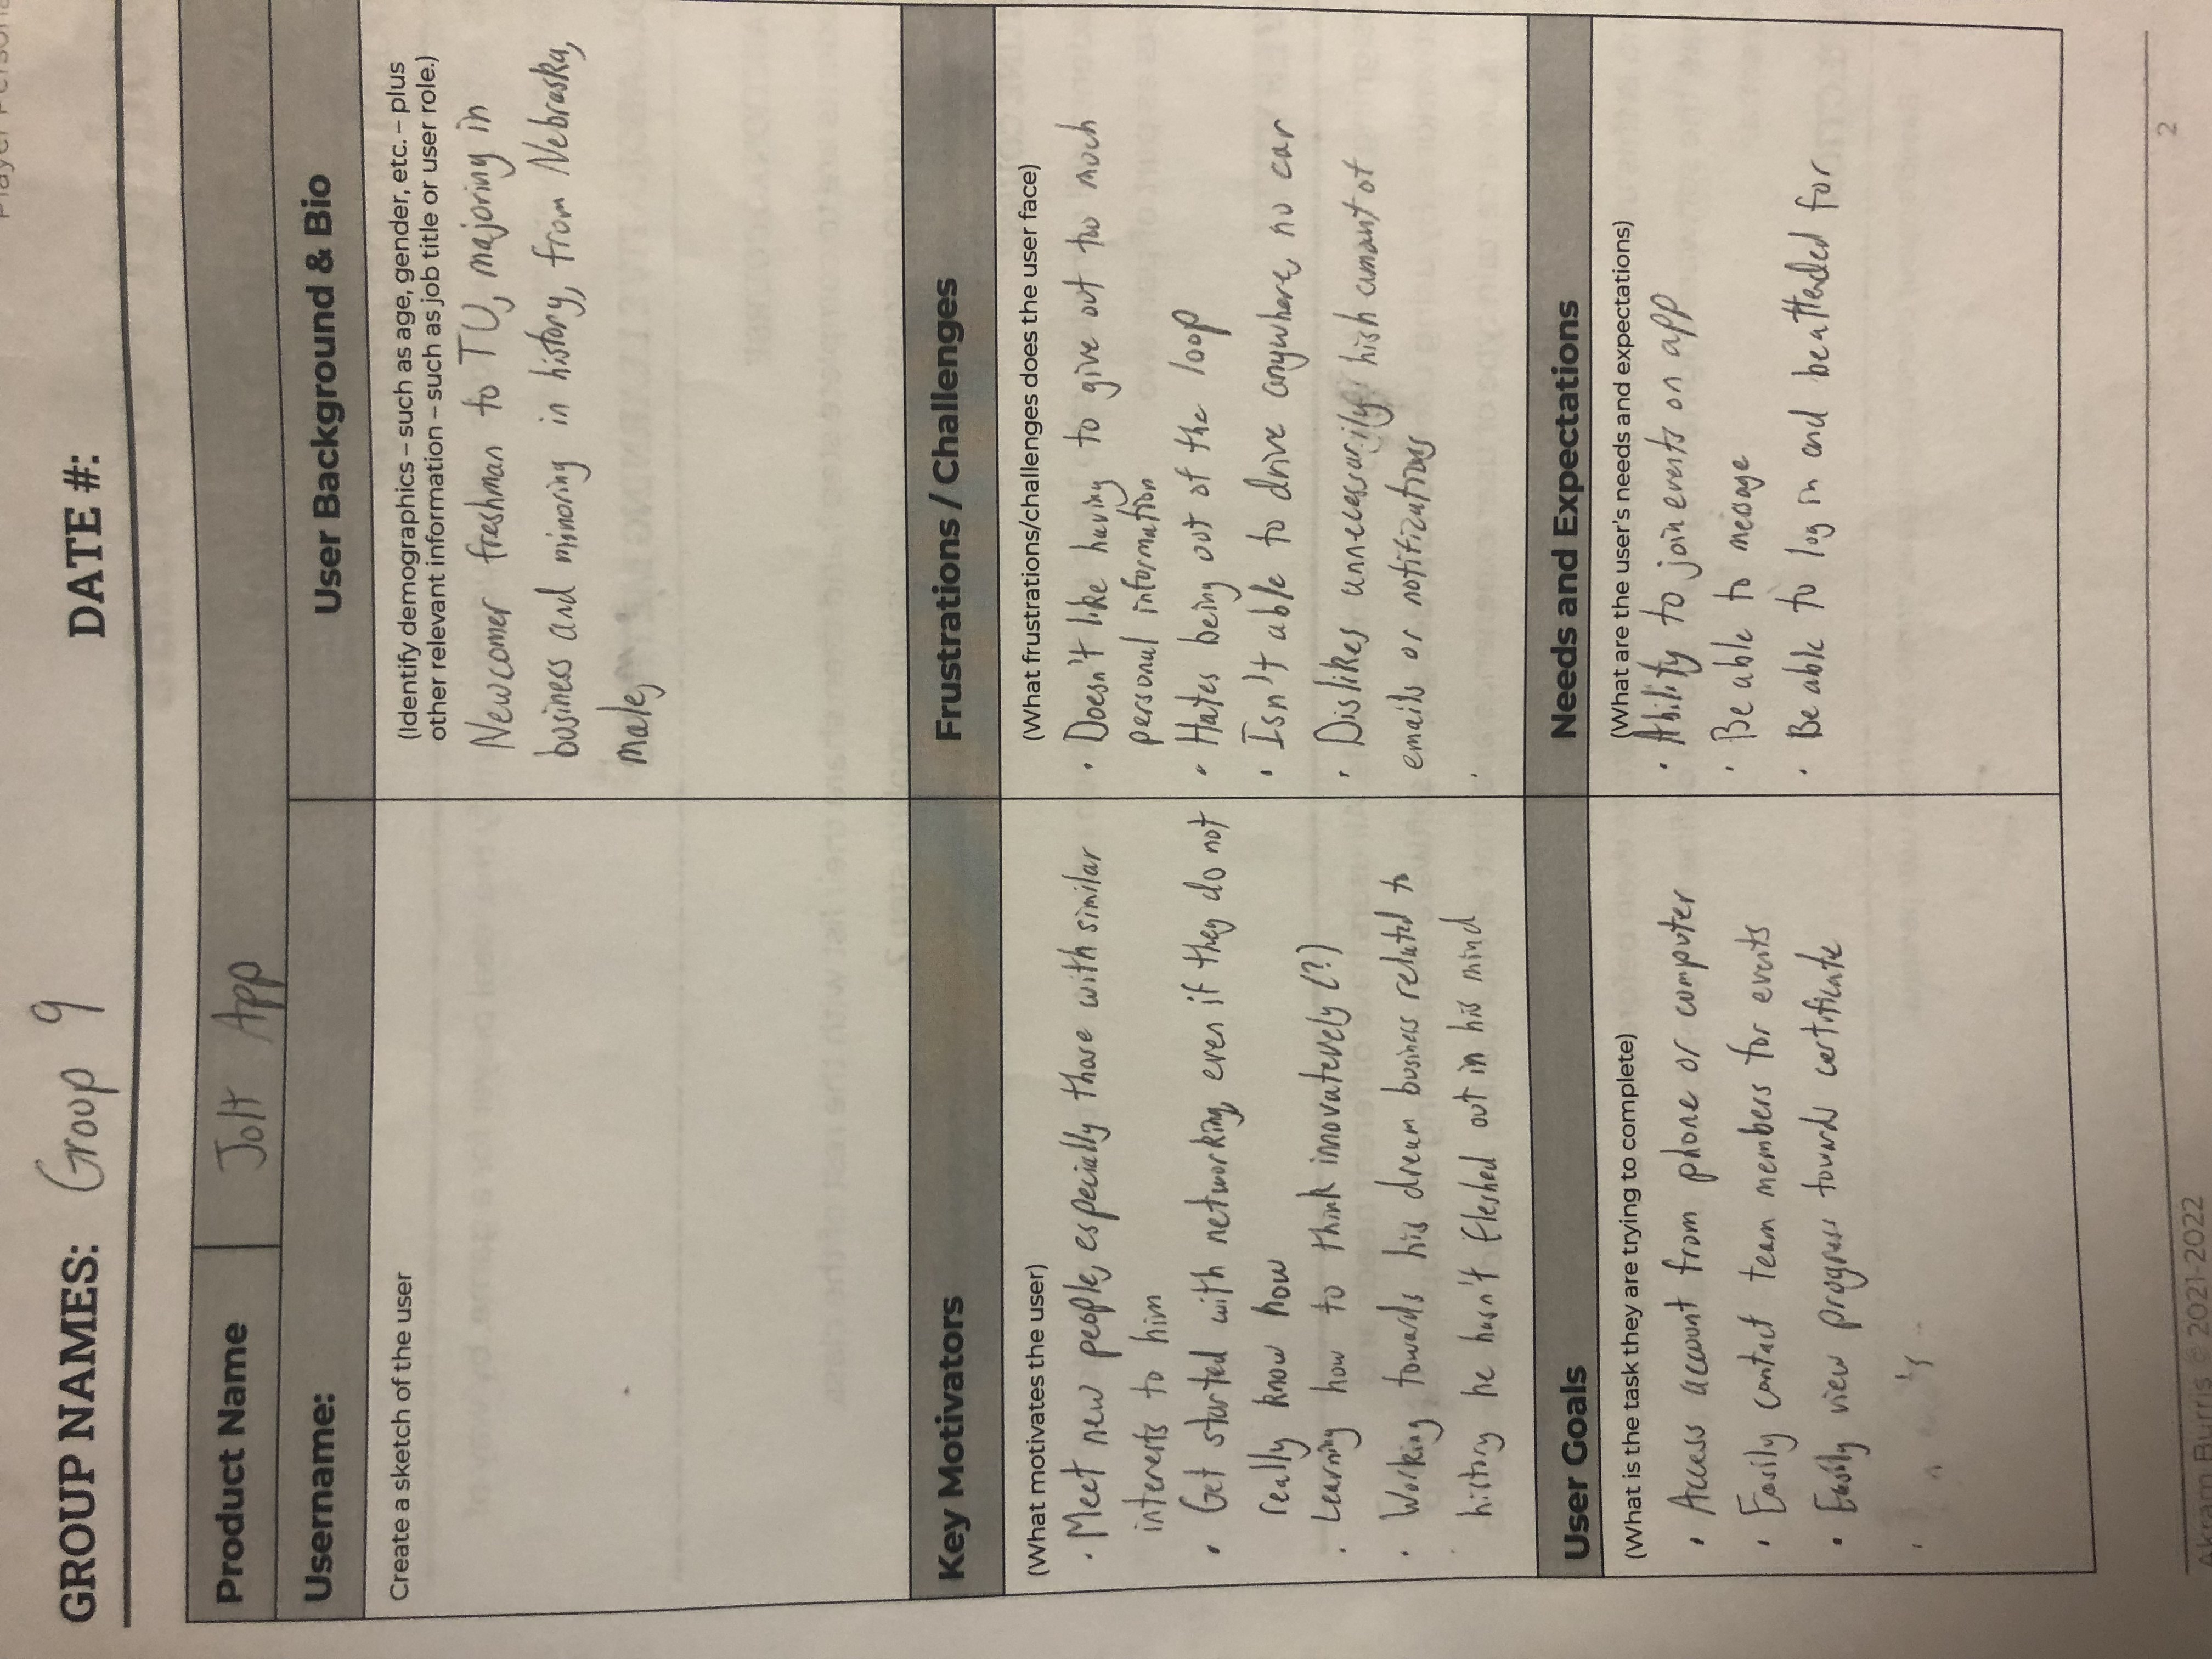 Player Persona
GROUP NAMES: Group 9 DATE #:
Product Name Jolt App
Username:
Create a sketch of the user
User Background & Bio
(Identify demographics – such as age, gender, etc. – plus
other relevant information – such as job title or user role.)
Newcomer freshman to TU, majoring in
business and minoring in history, from Nebraska,
male,
Key Motivators
(What motivates the user)
· Meet new people, especially those with similar
interests to him
· Get started with networking, even if they do not
really know how
· Learning how to think innovatevely (?)
· Working towards his dream business related to
history he hasn't fleshed out in his mind
Frustrations / Challenges
(What frustrations/challenges does the user face)
· Doesn't like having to give out too much
personal information
· Hates being out of the loop
· Isn't able to drive anywhere, no car
· Dislikes unnecessarily high amount of
emails or notifications
·
User Goals
(What is the task they are trying to complete)
· Access account from phone or computer
· Easily contact team members for events
· Easily view progress towards certificate
·
Needs and Expectations
(What are the user's needs and expectations)
· Ability to join events on app
· Be able to message
· Be able to log in and be attended for
2
Akram Burris © 2021-2022